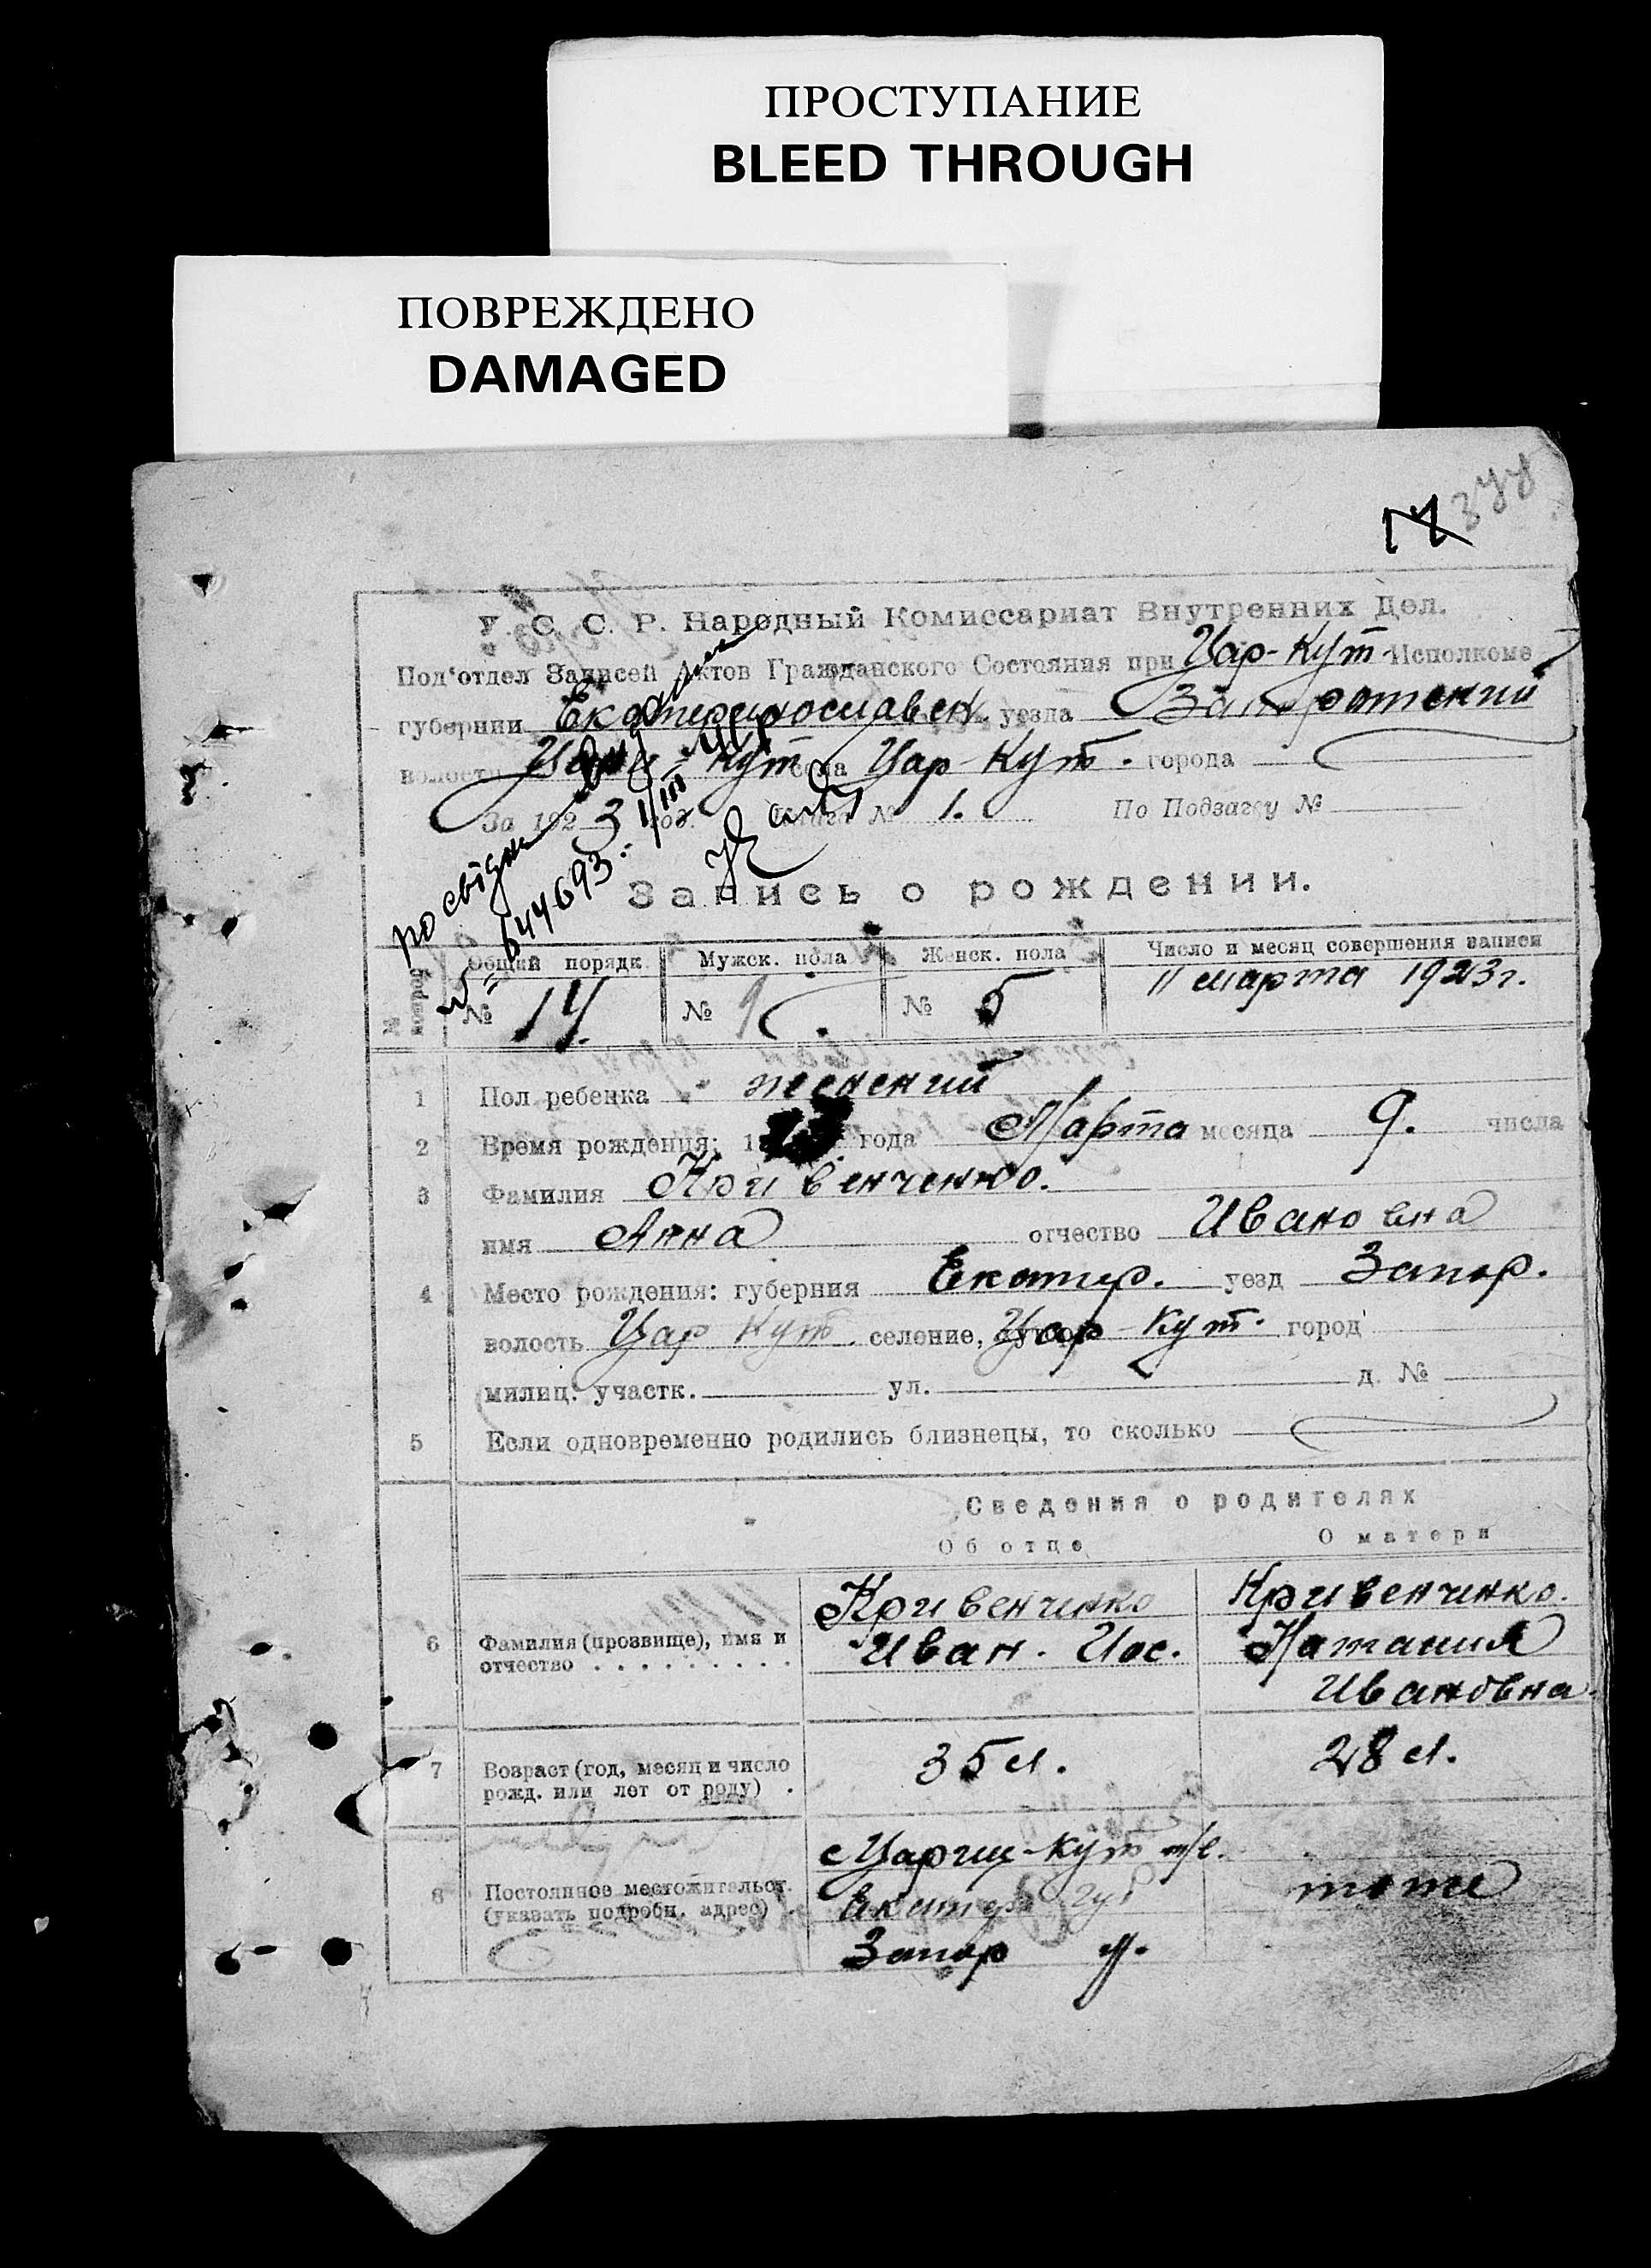 ПРОСТУПАНИЕ
BLEED THROUGH
ПОВРЕЖДЕНО
DAMAGED
У. С. С. Р. Народный Комиссариат Внутренних Дел.
Под'отдел Записей Актов Гражданского Состояния при Цар-Кут Исполкоме
губернии Екатеринославск. уезда Запорожский
волости Кут села Цар-Кут. города
За 1923 год. Книга № 1. По Подзагсу №
Запись о рождении.
№ 644693.
Общий порядк. Мужск. пола Женск. пола Число и месяц совершения записи
№ 14. № № 5 11 марта 1923 г.
1 Пол ребенка женский
2 Время рождения: года Марта месяца 9. числа
3 Фамилия Кривенченко.
имя Анна отчество Ивановна
4 Место рождения: губерния Екатер. уезд Запор.
волость Цар Кут селение, Цар-Кут. город
милиц. участк. ул. д. №
5 Если одновременно родились близнецы, то сколько
Сведения о родителях
Об отце О матери
6 Фамилия (прозвище), имя и отчество . . . . . . . . .
Кривенченко
Иван. Иос.
Кривенченко.
Наталия
Ивановна.
7 Возраст (год, месяц и число
рожд. или лет от роду) .
35 л. 28 л.
8 Постоянное местожительст.
(указать подробн. адрес) .
с Цариц-Кут
Екатер губ
Запор у.
тоже